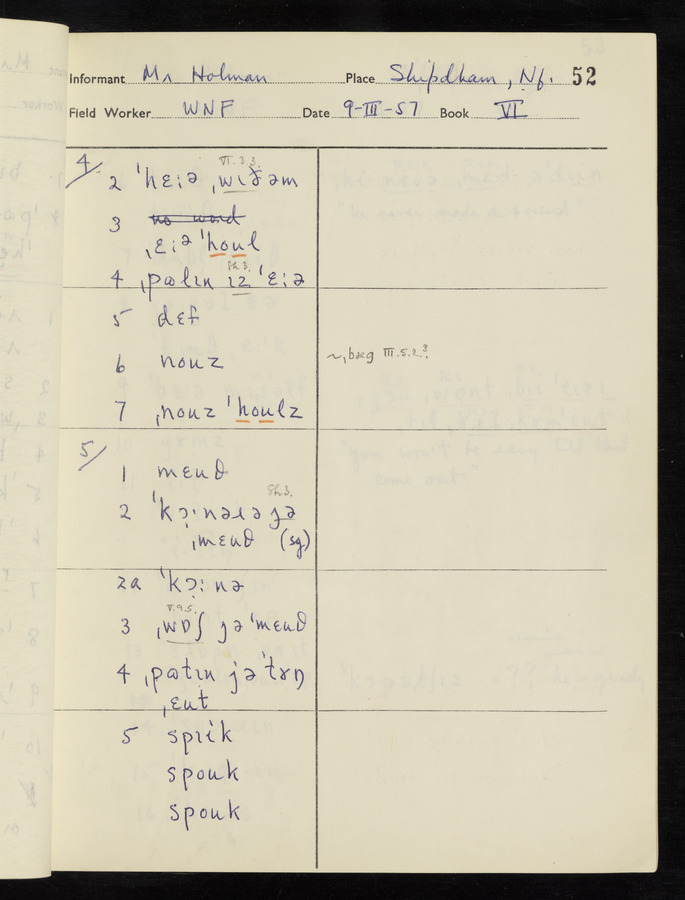 Informant Mr Holman Place Shipdham, Nf. 52
Field Worker WNF Date 9-III-57 Book VI
4/
VI.3.3.
2 ˈhɛːə ˌwɪðəm
3 no word
ˌɛːə ˈhoʊl
Sh.3.
4 ˌpætɪn ɪz ˈɛːə
5 dɛf
6 noʊz ~ˌbæg III.5.2.³
7 ˌnoʊz ˈhoʊlz
5/
1 mɛʊθ
Sh.3.
2 ˈkɔːnəɹə jə
ˌmɛʊθ (sg)
2a ˈkɔːnə
V.9.5.
3 ˌwɒʃ jə ˈmɛʊθ
4 ˌpætɪn jə ˈtɤŋ
ˌɛʊt
5 spɪik
spoʊk
spoʊk